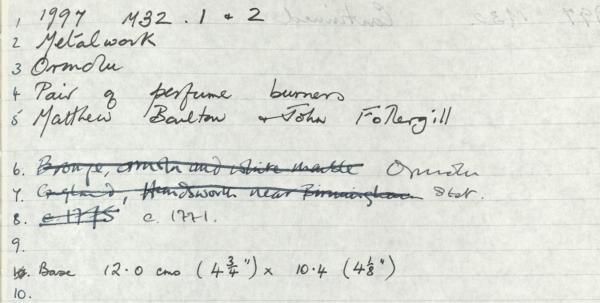 1 1997 M32 . 1 + 2
2 Metalwork
3 Ormolu
4 Pair of perfume burners
5 Matthew Boulton + John Fothergill
6. Bronze, ormolu and white marble Ormolu
7. England, Handsworth near Birmingham Stet.
8. c. 1775 c. 1771.
9.
Base 12.0 cms (4 3/4") x 10.4 (4 1/8")
10.